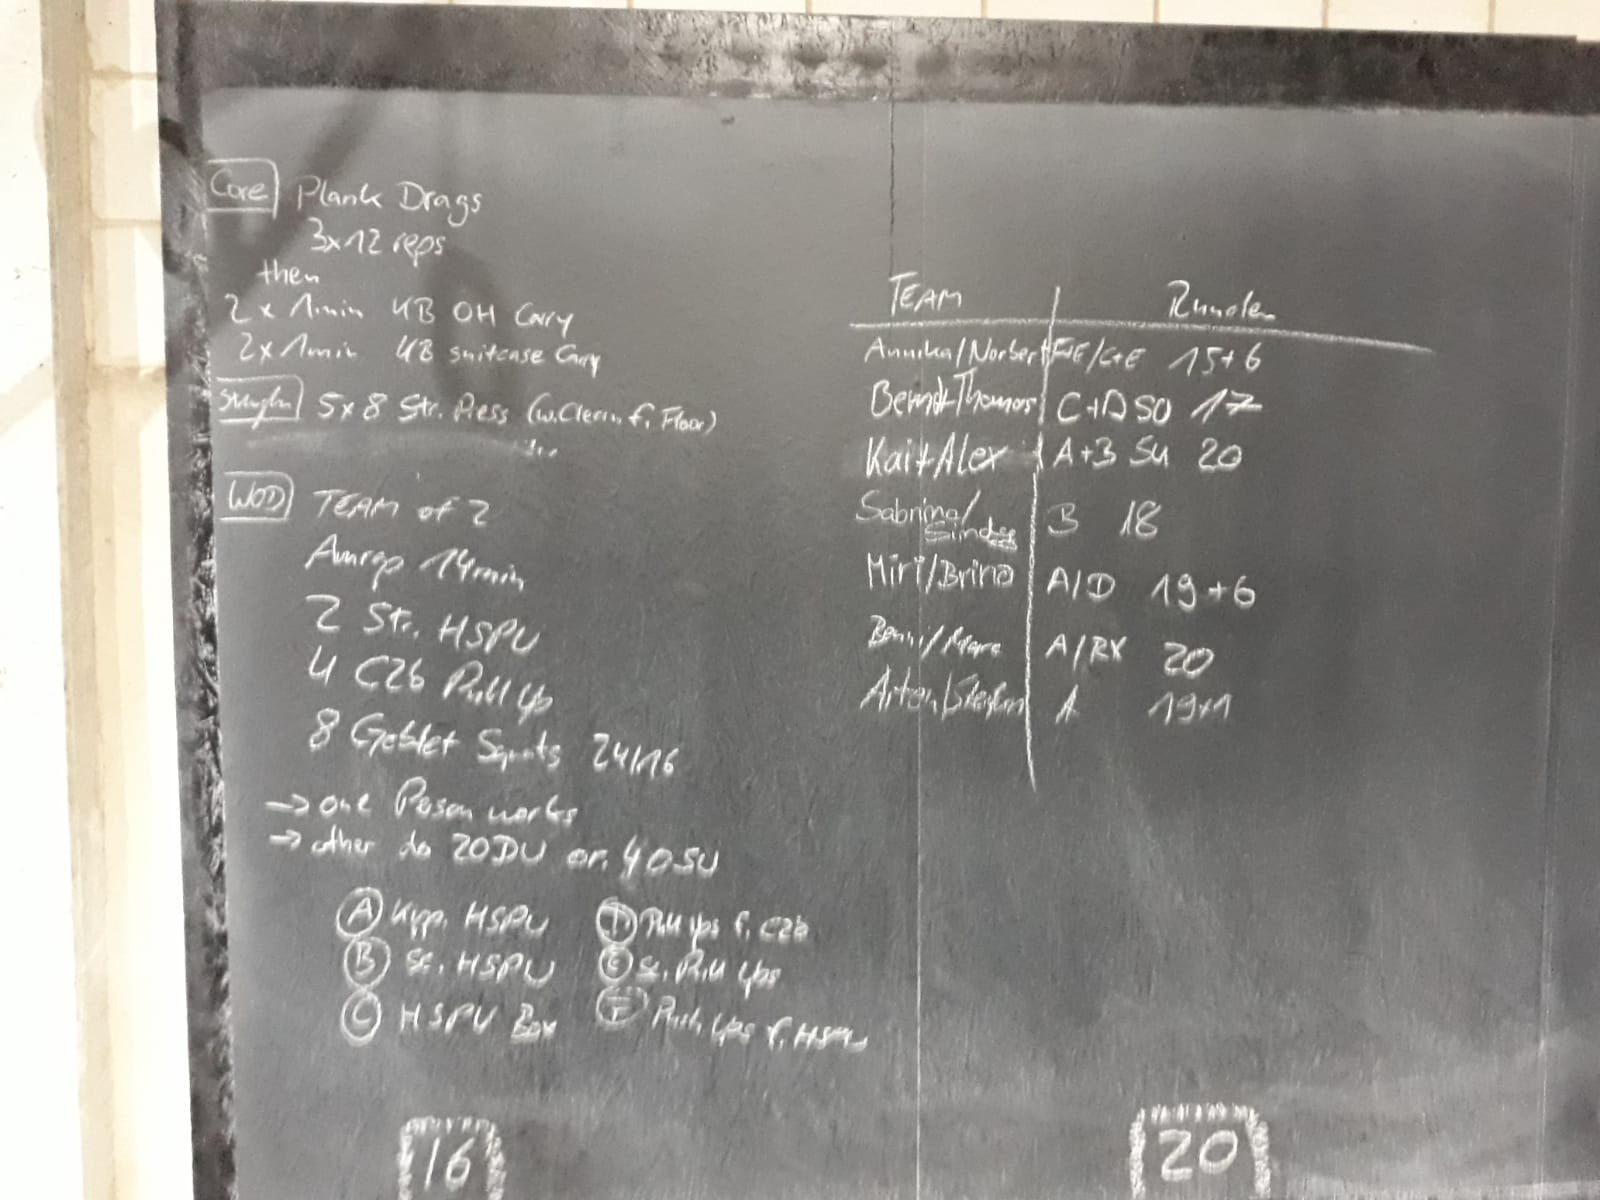 Core Plank Drags
3x12 reps
then
2 x 1min KB OH Carry
2x1min KB suitcase Carry
5x8 Str. Press (w. Clean f. Floor)
WOD TEAM of 2
Amrap 14min
2 Str. HSPU
4 C2b Pull Up
8 Goblet Squats 24/16
→ one Person works
→ other do 20DU or. 40SU
A Kipp. HSPU D Pull Ups f. C2b
B Sc. HSPU E Sc. Pull Ups
C HSPU Box F Push Ups f. HSPU
16
TEAM Runden
Annika/Norbert F+E/C+E 15+6
Bernd+Thomas C+D 50 17
Kai+Alex A+B SU 20
Sabrina/
B 18
Miri/Brina A/D 19+6
Benni/Marc A/RX 20
A 19+1
20